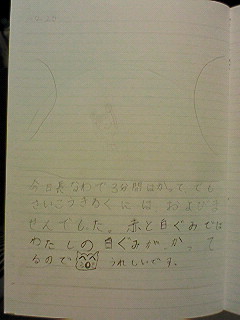 今日長なわで3分間はかって、でも
さいこうきろくにはおよびま
せんでした。赤と白ぐみでは
わたしの白ぐみがかって
るので うれしいです。